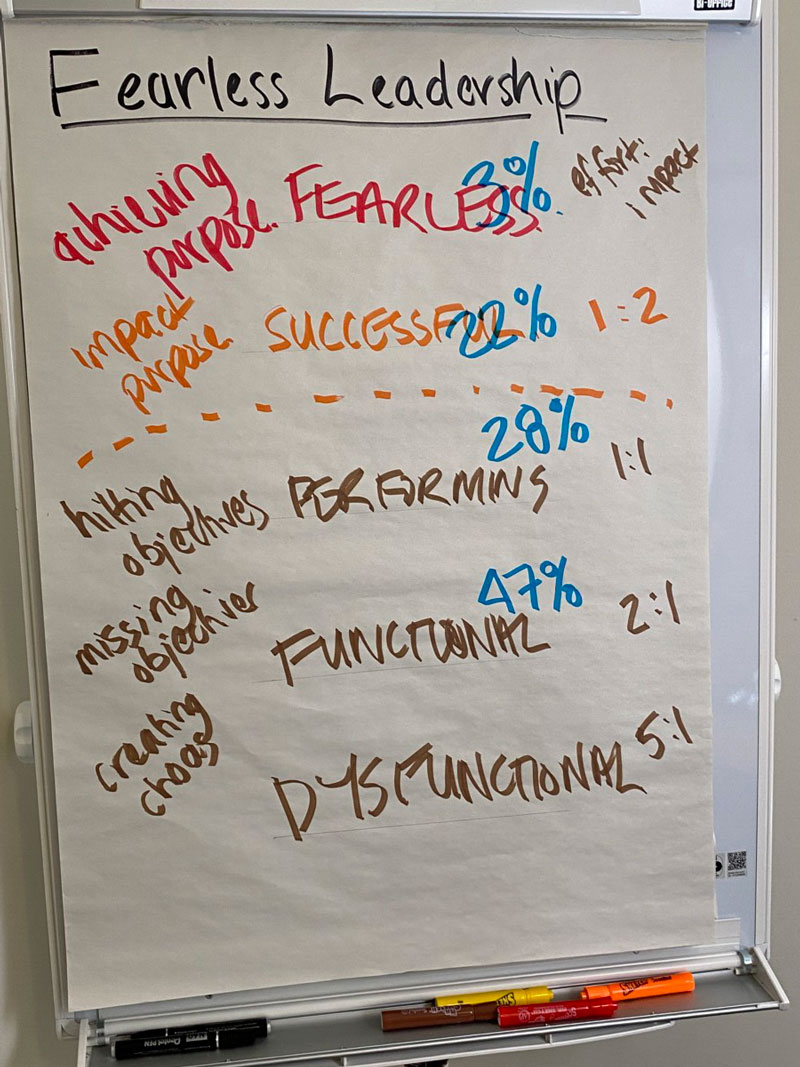 Bi-OFFICE
Fearless Leadership
achieving
purpose.
FEARLESS
3%
effort:
impact
impact
purpose.
SUCCESSFUL
22%
1:2
28%
hitting
objectives
PERFORMING
1:1
47%
missing
objectives
FUNCTIONAL
2:1
creating
choas
DYSFUNCTIONAL
5:1